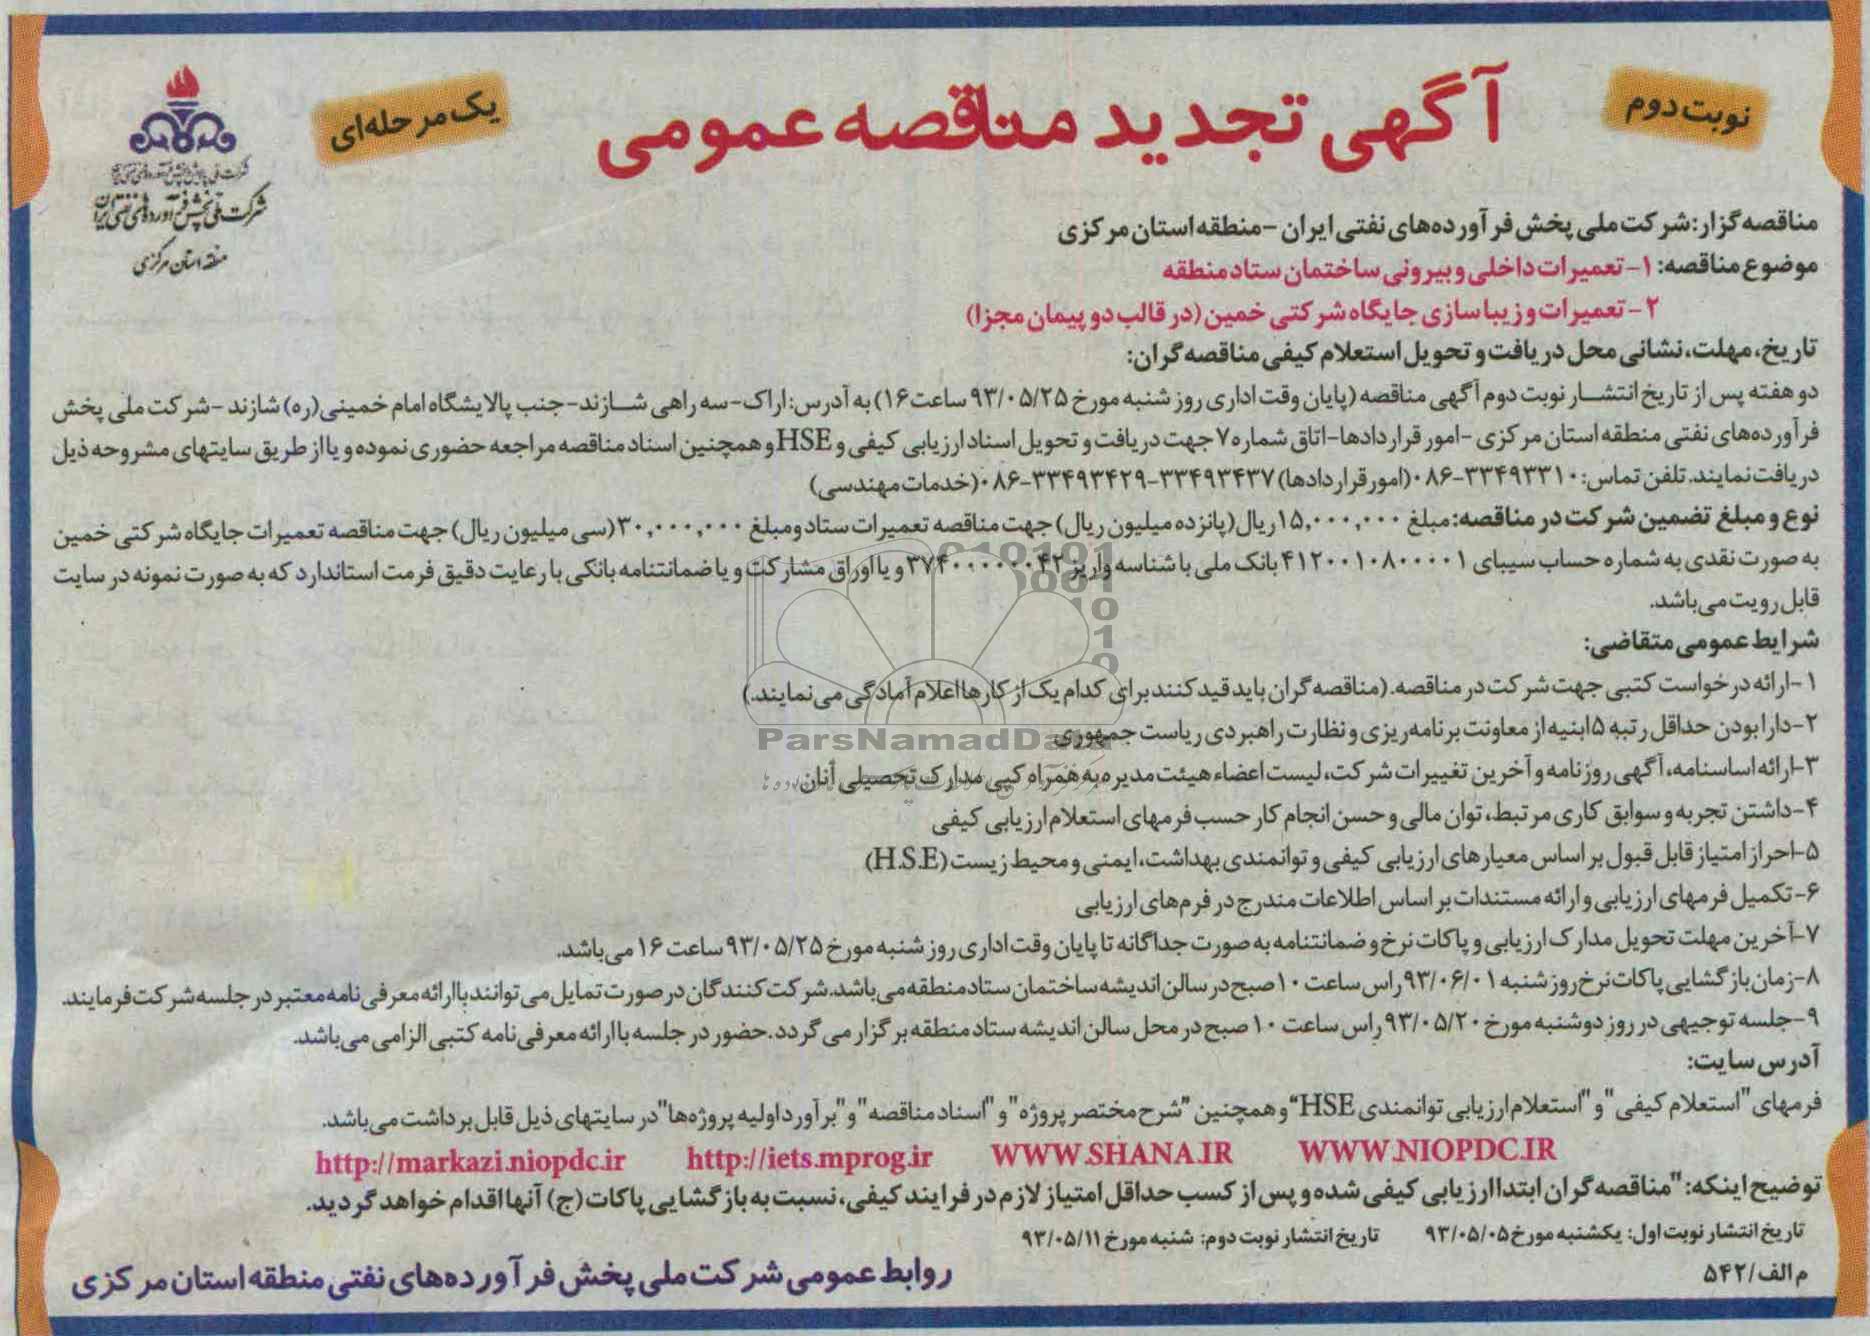 نوبت دوم
آگهی تجدید مناقصه عمومی
یک مرحله‌ای
شرکت ملی پالایش و پخش فرآورده‌های نفتی ایران
شرکت ملی پخش فرآورده‌های نفتی ایران
منطقه استان مرکزی
مناقصه گزار: شرکت ملی پخش فرآورده‌های نفتی ایران - منطقه استان مرکزی
موضوع مناقصه: ۱- تعمیرات داخلی و بیرونی ساختمان ستاد منطقه
۲- تعمیرات و زیباسازی جایگاه شرکتی خمین (در قالب دو پیمان مجزا)
تاریخ، مهلت، نشانی محل دریافت و تحویل استعلام کیفی مناقصه گران:
دو هفته پس از تاریخ انتشار نوبت دوم آگهی مناقصه (پایان وقت اداری روز شنبه مورخ ۹۳/۰۵/۲۵ ساعت ۱۶) به آدرس: اراک- سه راهی شازند- جنب پالایشگاه امام خمینی (ره) شازند - شرکت ملی پخش
فرآورده‌های نفتی منطقه استان مرکزی - امور قراردادها- اتاق شماره ۷ جهت دریافت و تحویل اسناد ارزیابی کیفی و HSE و همچنین اسناد مناقصه مراجعه حضوری نموده و یا از طریق سایتهای مشروحه ذیل
دریافت نمایند. تلفن تماس: ۳۳۴۹۳۳۱۰-۰۸۶ (امور قراردادها) ۳۳۴۹۳۴۳۷-۳۳۴۹۳۴۲۹-۰۸۶ (خدمات مهندسی)
نوع و مبلغ تضمین شرکت در مناقصه: مبلغ ۱۵,۰۰۰,۰۰۰ ریال (پانزده میلیون ریال) جهت مناقصه تعمیرات ستاد و مبلغ ۳۰,۰۰۰,۰۰۰ (سی میلیون ریال) جهت مناقصه تعمیرات جایگاه شرکتی خمین
به صورت نقدی به شماره حساب سیبای ۴۱۲۰۰۱۰۸۰۰۰۰۱ بانک ملی با شناسه واریز ۳۷۴۰۰۰۰۰۰۴۲ و یا اوراق مشارکت و یا ضمانتنامه بانکی با رعایت دقیق فرمت استاندارد که به صورت نمونه در سایت
قابل رویت می‌باشد.
شرایط عمومی متقاضی:
۱- ارائه درخواست کتبی جهت شرکت در مناقصه. (مناقصه گران باید قید کنند برای کدام یک از کارها اعلام آمادگی می‌نمایند.)
۲- دارا بودن حداقل رتبه ۵ ابنیه از معاونت برنامه‌ریزی و نظارت راهبردی ریاست جمهوری
۳- ارائه اساسنامه، آگهی روزنامه و آخرین تغییرات شرکت، لیست اعضاء هیئت مدیره به همراه کپی مدارک تحصیلی آنان
۴- داشتن تجربه و سوابق کاری مرتبط، توان مالی و حسن انجام کار حسب فرمهای استعلام ارزیابی کیفی
۵- احراز امتیاز قابل قبول بر اساس معیارهای ارزیابی کیفی و توانمندی بهداشت، ایمنی و محیط زیست (H.S.E)
۶- تکمیل فرمهای ارزیابی و ارائه مستندات بر اساس اطلاعات مندرج در فرم‌های ارزیابی
۷- آخرین مهلت تحویل مدارک ارزیابی و پاکات نرخ و ضمانتنامه به صورت جداگانه تا پایان وقت اداری روز شنبه مورخ ۹۳/۰۵/۲۵ ساعت ۱۶ می باشد.
۸- زمان بازگشایی پاکات نرخ روز شنبه ۹۳/۰۶/۰۱ راس ساعت ۱۰ صبح در سالن اندیشه ساختمان ستاد منطقه می باشد. شرکت کنندگان در صورت تمایل می توانند با ارائه معرفی نامه معتبر در جلسه شرکت فرمایند.
۹- جلسه توجیهی در روز دوشنبه مورخ ۹۳/۰۵/۲۰ راس ساعت ۱۰ صبح در محل سالن اندیشه ستاد منطقه برگزار می گردد. حضور در جلسه با ارائه معرفی نامه کتبی الزامی می‌باشد.
آدرس سایت:
فرمهای "استعلام کیفی" و "استعلام ارزیابی توانمندی HSE" و همچنین "شرح مختصر پروژه" و "اسناد مناقصه" و "برآورد اولیه پروژه‌ها" در سایتهای ذیل قابل برداشت می باشد.
WWW.NIOPDC.IR WWW.SHANA.IR http://iets.mprog.ir http://markazi.niopdc.ir
توضیح اینکه: "مناقصه گران ابتدا ارزیابی کیفی شده و پس از کسب حداقل امتیاز لازم در فرایند کیفی، نسبت به بازگشایی پاکات (ج) آنها اقدام خواهد گردید.
تاریخ انتشار نوبت اول: یکشنبه مورخ ۹۳/۰۵/۰۵ تاریخ انتشار نوبت دوم: شنبه مورخ ۹۳/۰۵/۱۱
م الف/۵۴۲
روابط عمومی شرکت ملی پخش فرآورده‌های نفتی منطقه استان مرکزی
ParsNamadData